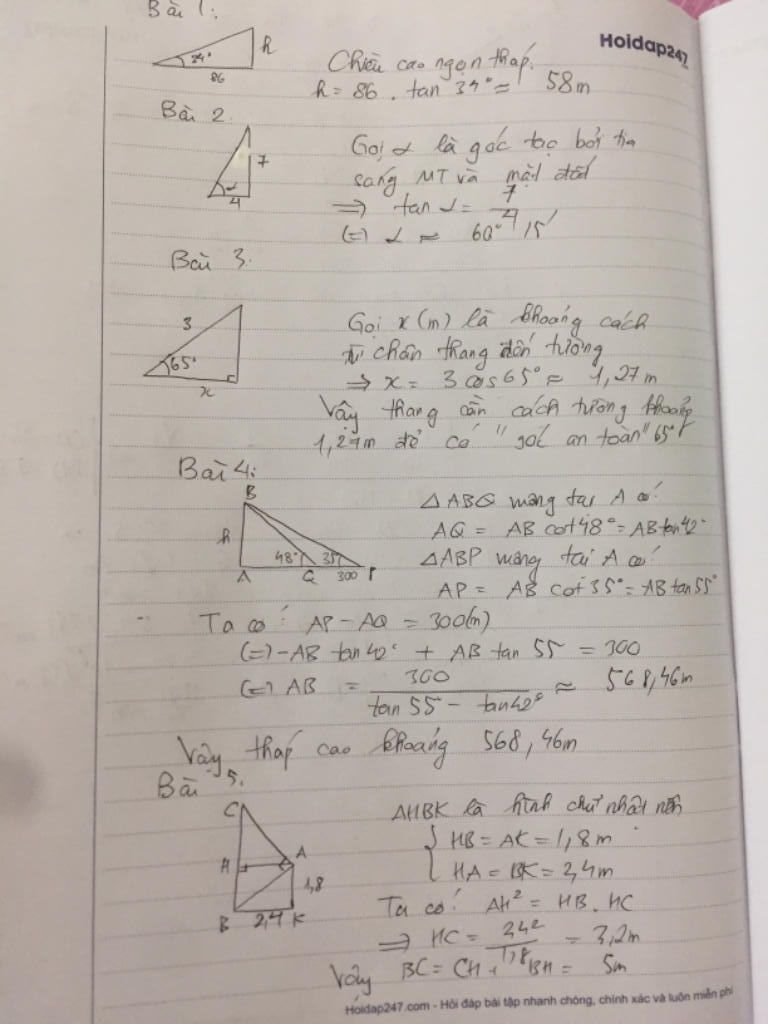 Bài 1:
Hoidap247
34°
h
86
Chiều cao ngọn tháp:
h = 86 . tan 34° ≈ 58m
Bài 2
7
α
4
Gọi α là góc tạo bởi tia
sáng MT và mặt đất
⇒ tan α = 7/4
(=) α ≈ 60° 15'
Bài 3.
3
65°
x
Gọi x (m) là khoảng cách
từ chân thang đến tường
⇒ x = 3 cos 65° ≈ 1,27m
Vậy thang cần cách tường khoảng
1,27m để có "góc an toàn" 65°
Bài 4:
B
h
48° 35°
A Q 300 P
△ABQ vuông tại A có:
AQ = AB cot 48° = AB tan 42°
△ABP vuông tại A có:
AP = AB cot 35° = AB tan 55°
Ta có: AP - AQ = 300(m)
(=) - AB tan 42° + AB tan 55 = 300
(=) AB = 300/(tan 55 - tan 42°) ≈ 568,46m
Vậy tháp cao khoảng 568,46m
Bài 5.
C
H A
1,8
B 2,4 K
AHBK là hình chữ nhật nên
{ HB = AK = 1,8m
{ HA = BK = 2,4m
Ta có: AH² = HB . HC
⇒ HC = 2,4²/1,8 = 3,2m
Vậy BC = CH + BH = 5m
Hoidap247.com - Hỏi đáp bài tập nhanh chóng, chính xác và luôn miễn phí